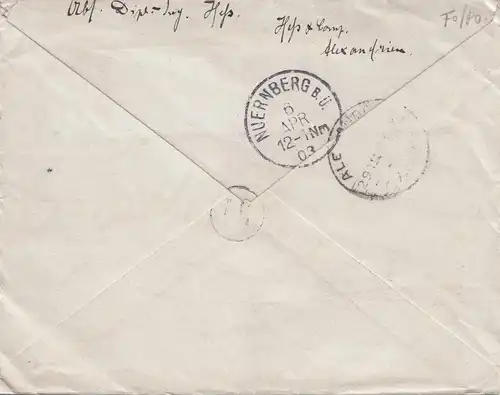 Abs. Dipl. Ing. Hess.
Hess & Comp.
Alexandrien.
Fo/Po.
NUERNBERG B.Ü.
6
APR
12-1Nm
03
ALE